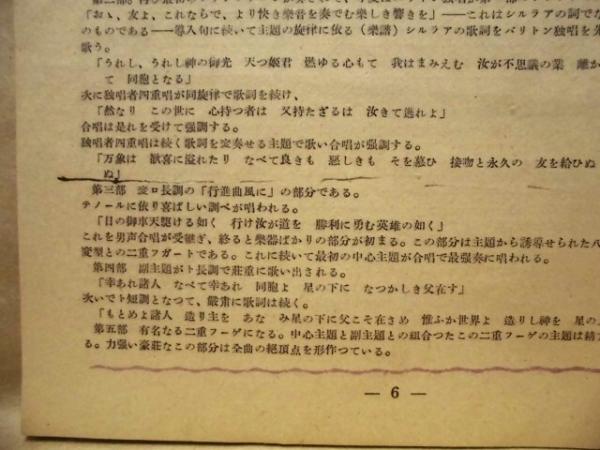 「おゝ、友よ、これならで、より快き樂音を奏でむ樂しき響きを」――これはシルラアの詞でな
のものである――導入句に続いて主題の旋律に依る(樂譜)シルラアの歌詞をバリトン独唱を先
歌う。
「うれし、うれし神の御光 天つ姬君 燃ゆる心もて 我はまみえむ 汝が不思議の業 離か
て 同胞となる」
次に独唱者四重唱が同旋律で歌詞を続け、
「然なり この世に 心持つ者は 又持たざるは 汝きて逃れよ」
合唱は是れを受けて强調する。
独唱者四重唱は続く歌詞を変奏せる主題で歌い合唱が强調する。
「万象は 歓喜に溢れたり なべて良きも 悪しきも そを慕ひ 接吻と永久の 友を給ひぬ
ぬ」
第三部 変ロ長調の「行進曲風に」の部分である。
テノールに依り喜ばしい調べが唱われる。
「日の御車天駆ける如く 行け汝が道を 勝利に勇む英雄の如く」
これを男声合唱が受継ぎ、終ると樂器ばかりの部分が初まる。この部分は主題から誘導せられた八
変型との二重フガートである。これに続いて最初の中心主題が合唱で最强奏に唱われる。
第四部 副主題がト長調で莊重に歌い出される。
「幸あれ諸人 なべて幸あれ 同胞よ 星の下に なつかしき父在す」
次いでト短調となつて、厳肅に歌詞は続く。
「もとめよ諸人 造り主を あな み星の下に父こそ在さめ 惟ふか世界よ 造りし神を 星の
第五部 有名なる二重フーゲになる。中心主題と副主題との組合つたこの二重フーゲの主題は
る。力强い豪莊なこの部分は全曲の絕頂点を形作つている。
― 6 ―